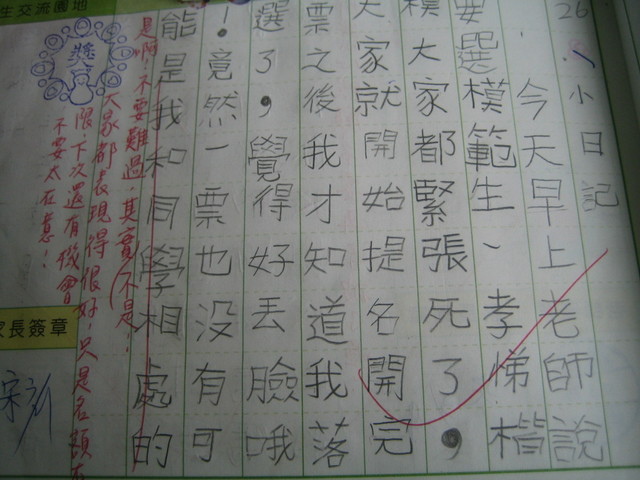 26
小日記
今天早上老師說
要選模範生、孝悌楷
模大家都緊張死了，
大家就開始提名開完
票之後我才知道我落
選了，覺得好丟臉哦
！竟然一票也沒有可
能是我和同學相處的
是啊！不要難過，其實(不是！
大家都表現得很好，只是名額有
限下次還有機會
不要太在意！
生交流園地
獎
家長簽章